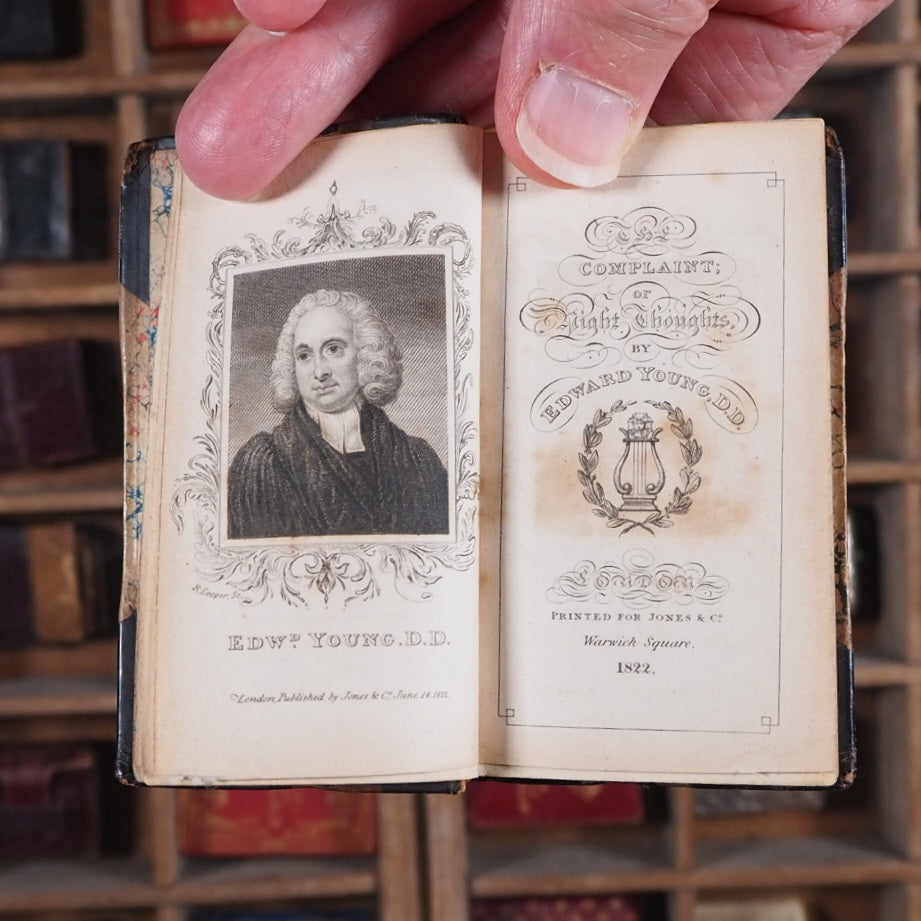 R. Cooper, Sc.
EDWD. YOUNG. D.D.
London, Published by Jones & Co. June 14, 1822.
THE
COMPLAINT;
or
Night Thoughts,
BY
EDWARD YOUNG, D.D.
LONDON
PRINTED FOR JONES & Co.
Warwick Square.
1822.